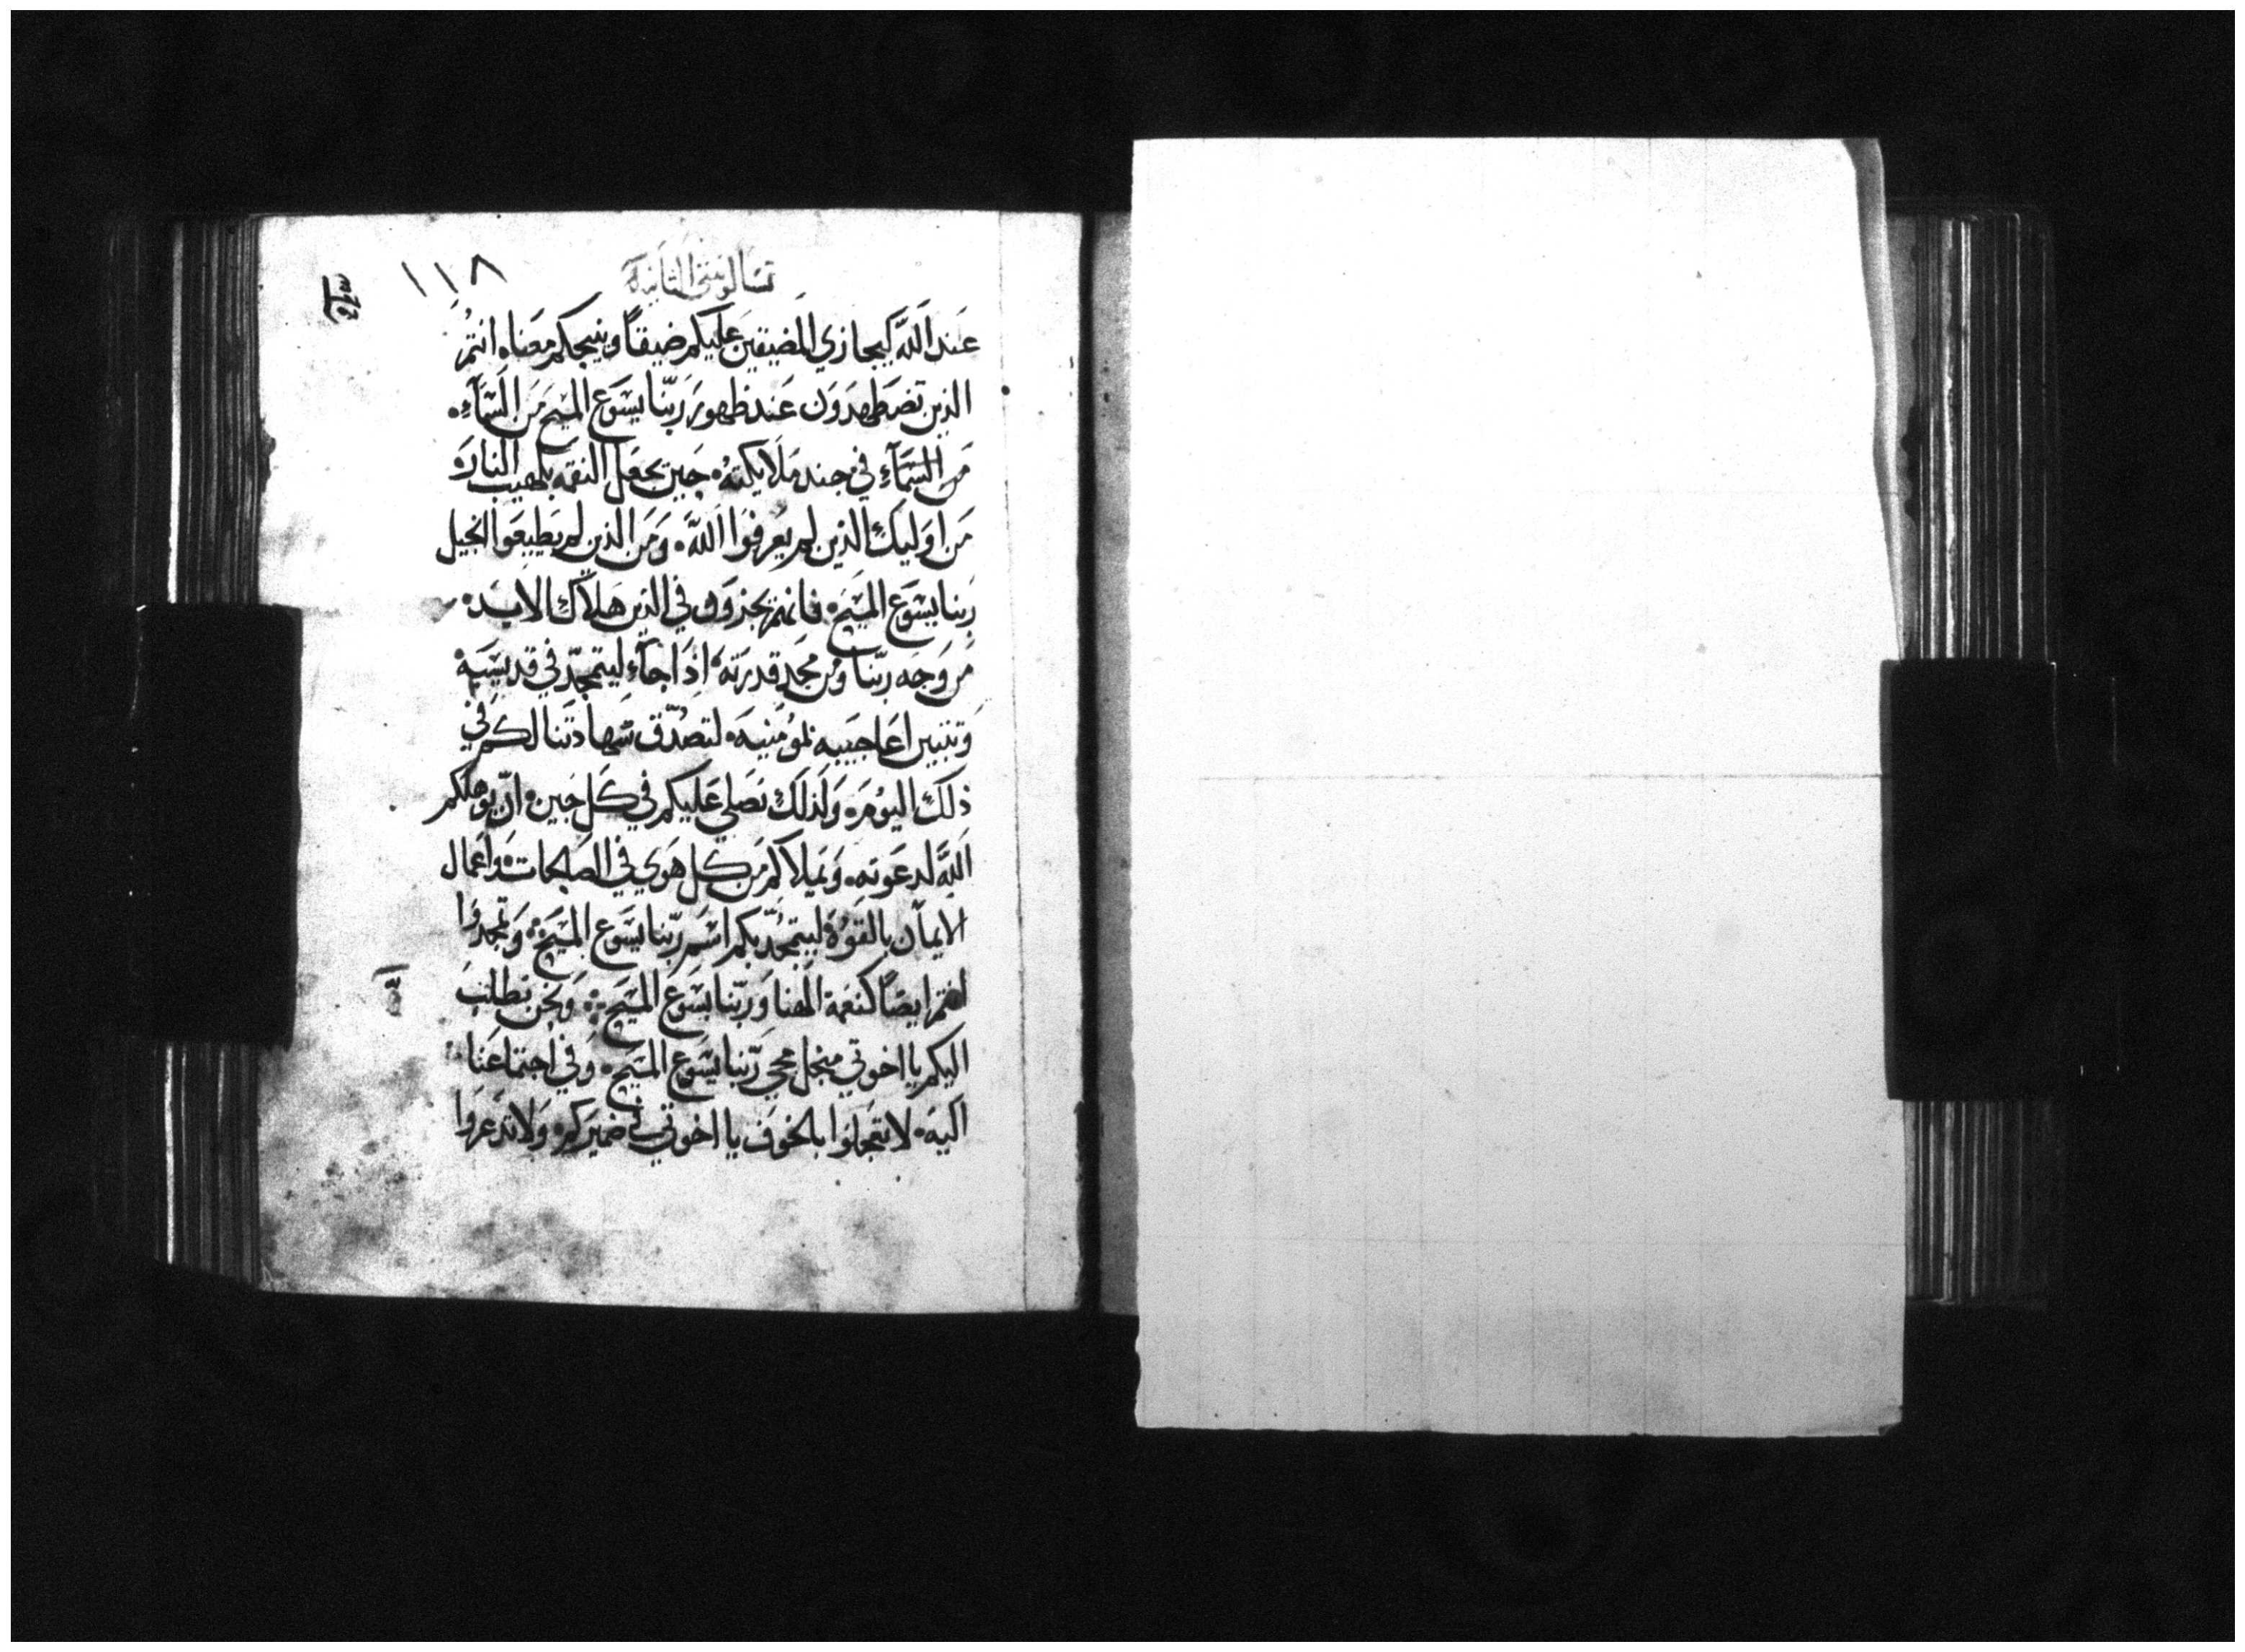 تسالونيقي الثانية
١١٨
عَند اللَّه كيجازي المضيقين عَليكم ضيقاً وينيجكم معَناه انتُم
الذين تضطهدَوَن عَند ظهورَ رَبّنا يسَوع المسَيح مَن السَّمآءِ۰
مَن السَّمآءِ في جند مَلايكتهُ۰ حَين يجعَل النقمه بلهيب النارَه
مَن اوَليك الذين لم يعُرفوَا اللَّه۰ وَمَن الذين لم يطَيعَوا انجيل
رَبنا يسَوع المسَيَح۰ فانهمَ يجزوَن في الدَين هَلاك الابَد۰
مَن وَجَه ربّنا وَمُن مجَدِ قدرَته۰ اذَا جآءِ ليتمجدّ في قديسَيه۰
وَتتبين اعَاجَيبه بمؤُمَنيه۰ لتصدُّق شَهادتَنا لكم في
ذلكَ اليوُمَ۰ وَلَذلكَ نصَلي عَليكم في كَل حَين۰ انّ يؤَهلكم
اللَّه لدعَوَته۰ وَيملاكم مَن كل هَوي في الصَالحات۰ وَاعَمال
الايمآن بالقوُة۰ ليتمجُدّ بكم اسَم ربّنا يسَوع المسَيح۰ وَتمجدوَا
انتم ايضًا كنعَمة الهنا وَربّنا يسَوع المسَيح۰ وَنحَن نطلبَ
اليكم يا اخوتي منجل مجي رَبّنا يسَوع المسَيح۰ وَفي اجتماعَنا
اليه۰ لا تتعجلوا بالخوَف يا اخوتي في ضميرَكم۰ وَلا تدعَروَا